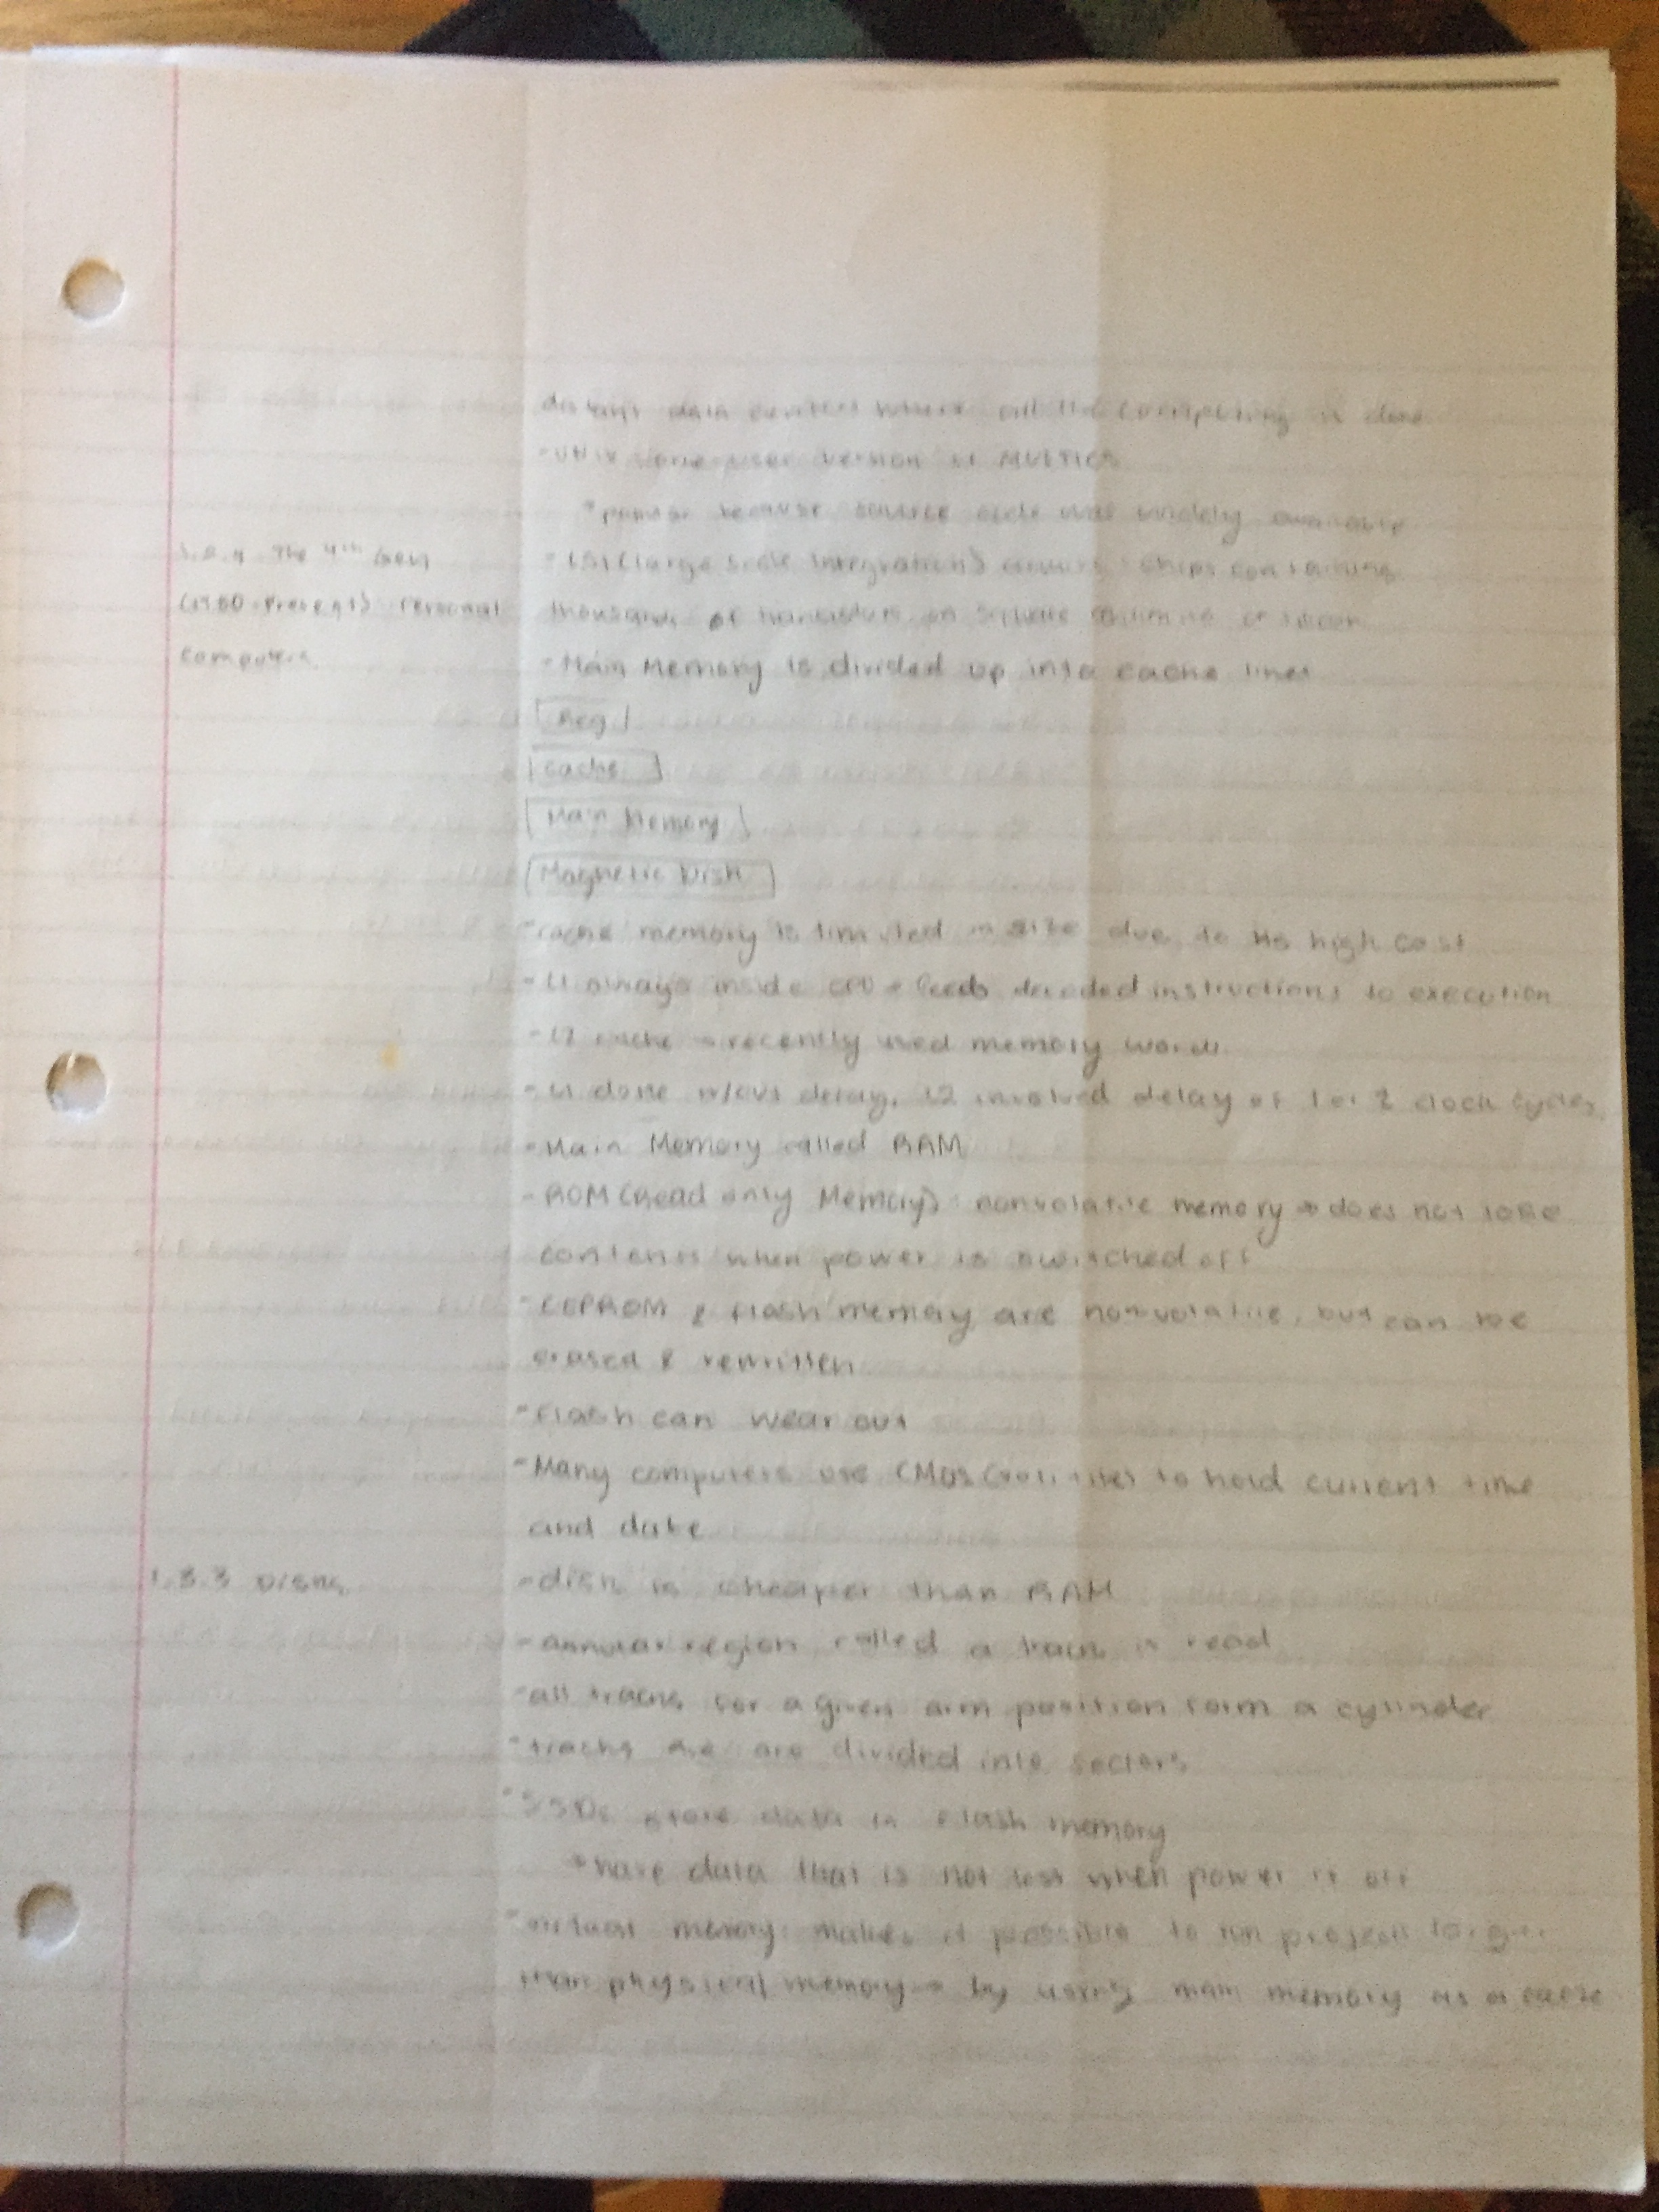 distant data centers where all the computing is done
- UNIX version of MULTICS
* popular because source code was widely available
1.2.4 The 4th Gen - LSI (Large Scale Integration) circuits: chips containing
(1980-Present) Personal thousands of transistors on square centimeter of silicon
Computers - Main Memory is divided up into cache lines
Reg
cache
Main Memory
Magnetic Disk
- cache memory is limited in size due to its high cost
- L1 always inside CPU → feeds decoded instructions to execution
- L2 cache → recently used memory words
- L1 done w/out delay, L2 involved delay of 1 or 2 clock cycles
- Main Memory called RAM
- ROM (Read only Memory): nonvolatile memory → does not lose
contents when power is switched off
- EEPROM & flash memory are nonvolatile, but can be
erased & rewritten
- Flash can wear out
- Many computers use CMOS (volatile) to hold current time
and date
1.3.3 Disks - disk is cheaper than RAM
- annular region called a track is read
- all tracks for a given arm position form a cylinder
- tracks are divided into sectors
- SSDs store data in flash memory
* have data that is not lost when power is off
- virtual memory: makes it possible to run larger
than physical memory → by using main memory as a cache